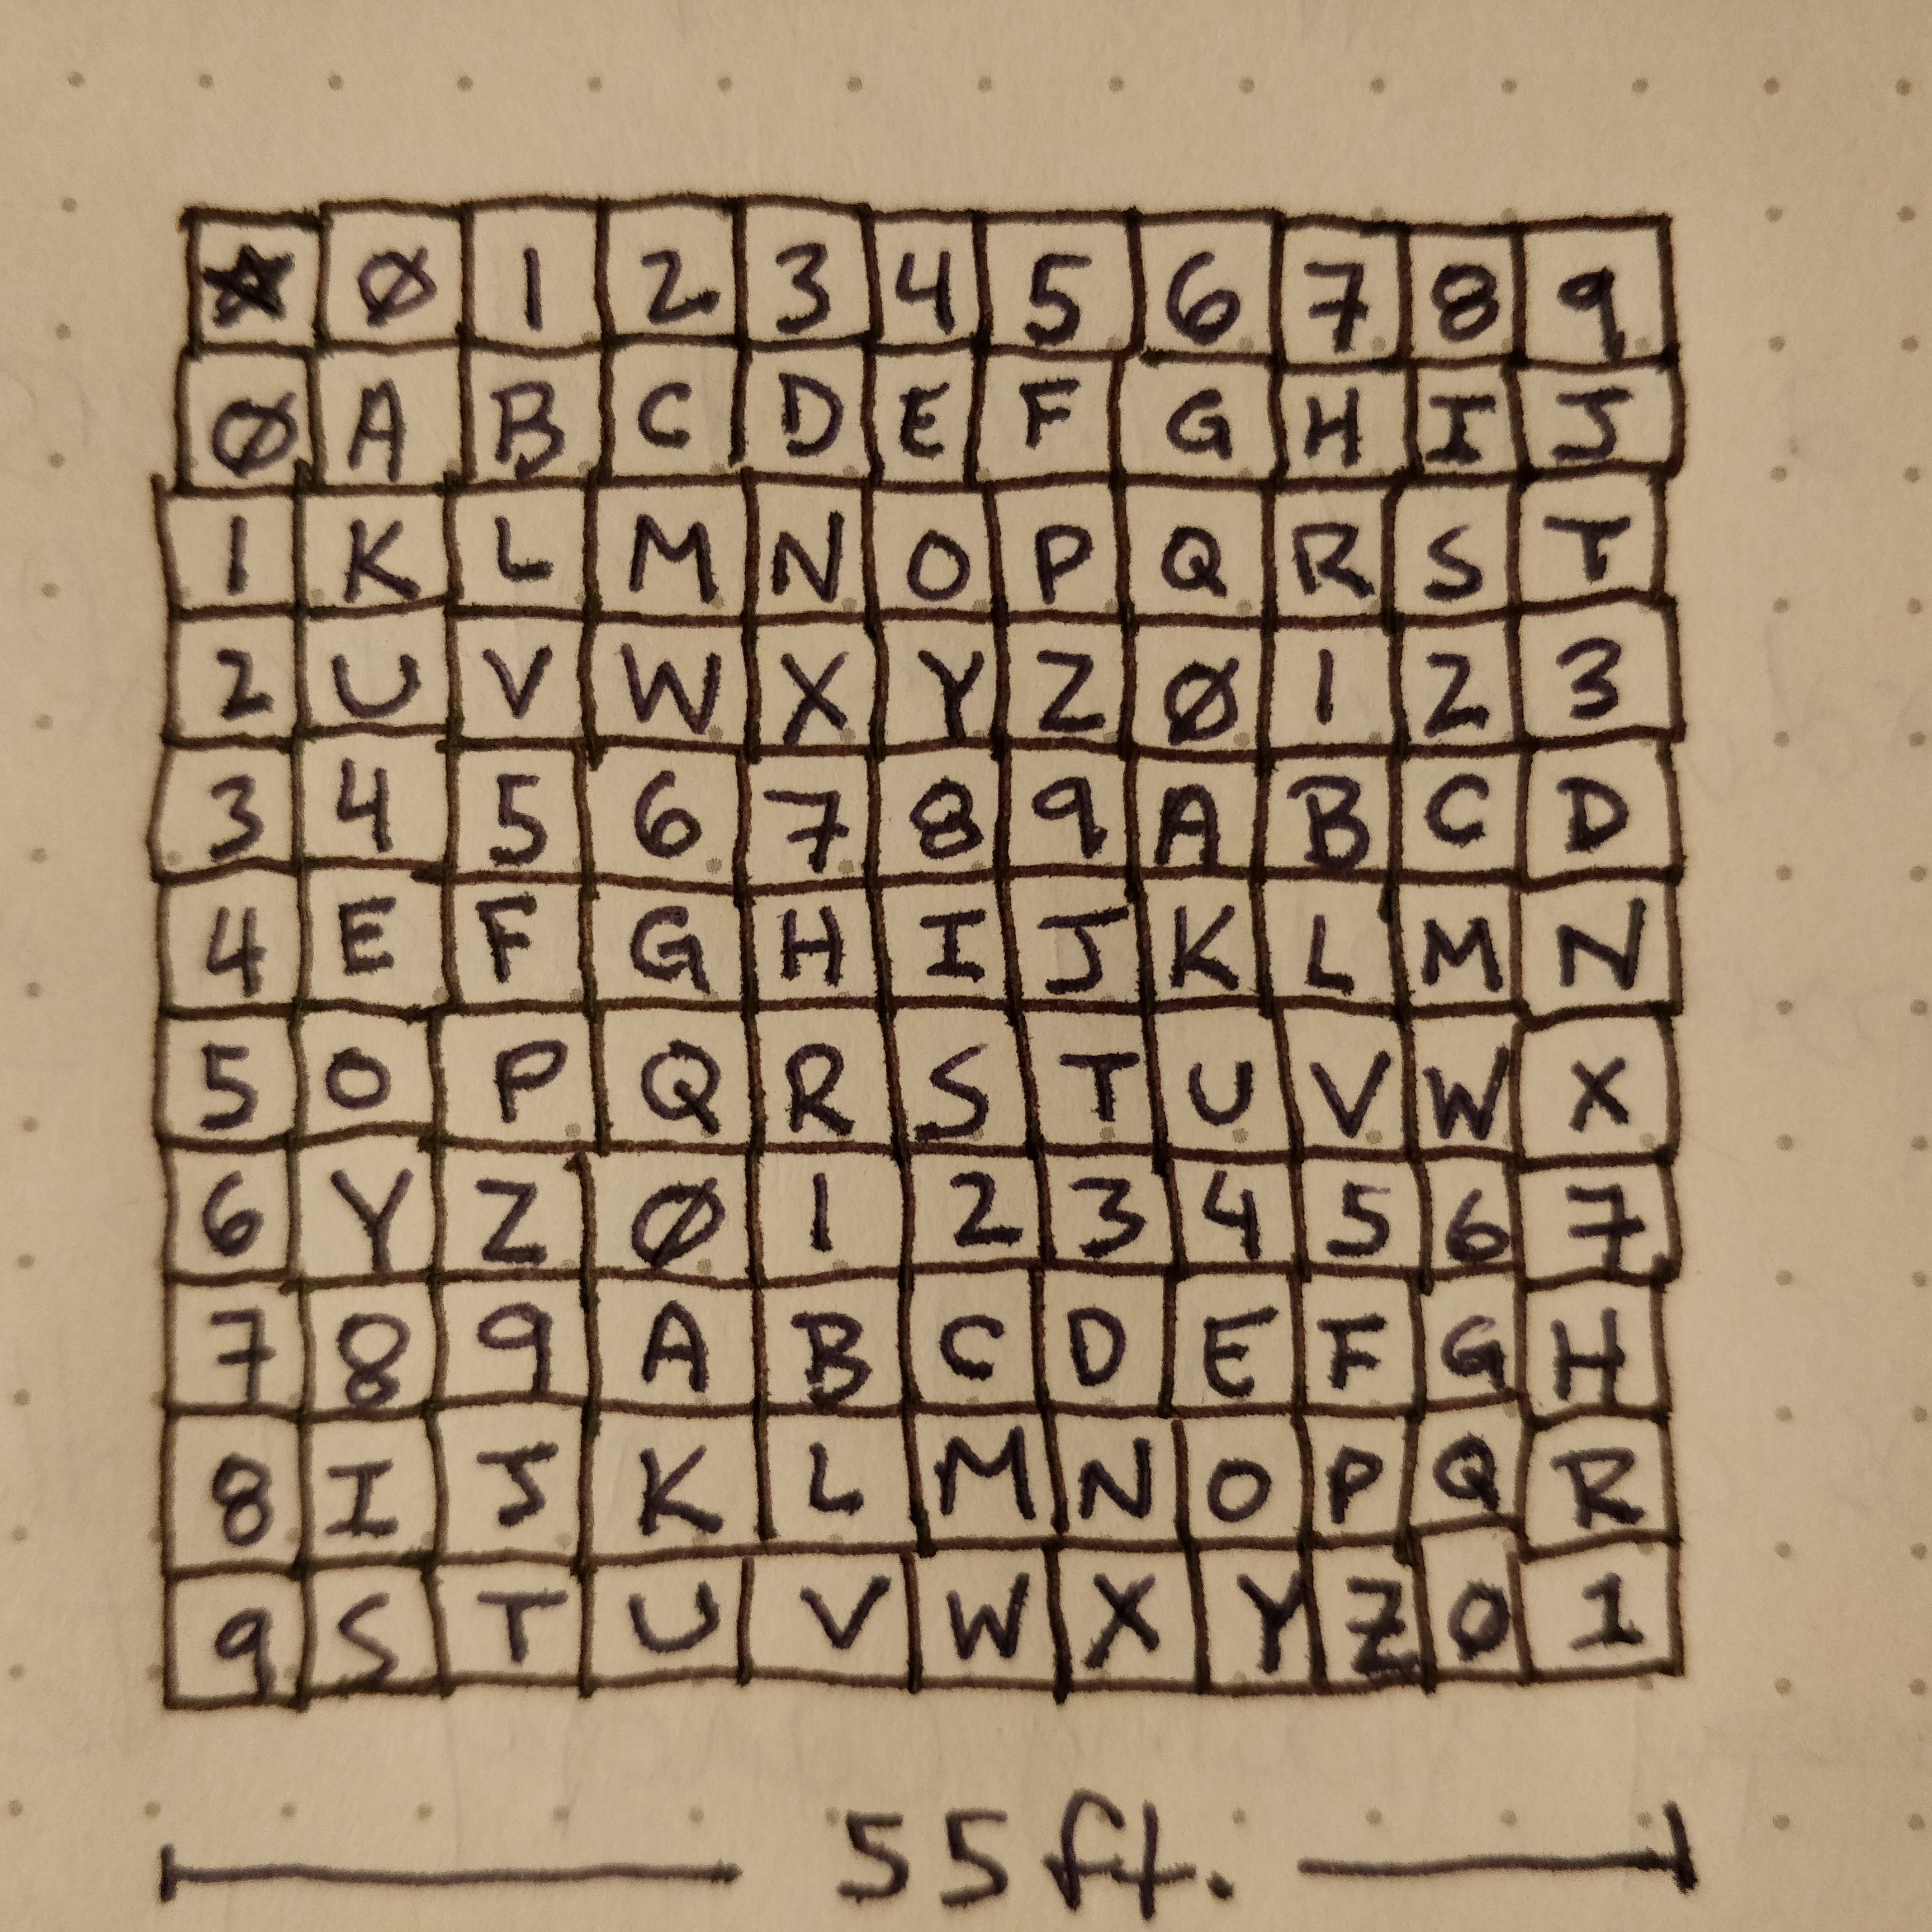 ★ Ø 1 2 3 4 5 6 7 8 9
Ø A B C D E F G H I J
1 K L M N O P Q R S T
2 U V W X Y Z Ø 1 2 3
3 4 5 6 7 8 9 A B C D
4 E F G H I J K L M N
5 O P Q R S T U V W X
6 Y Z Ø 1 2 3 4 5 6 7
7 8 9 A B C D E F G H
8 I J K L M N O P Q R
9 S T U V W X Y Z Ø 1
55 ft.